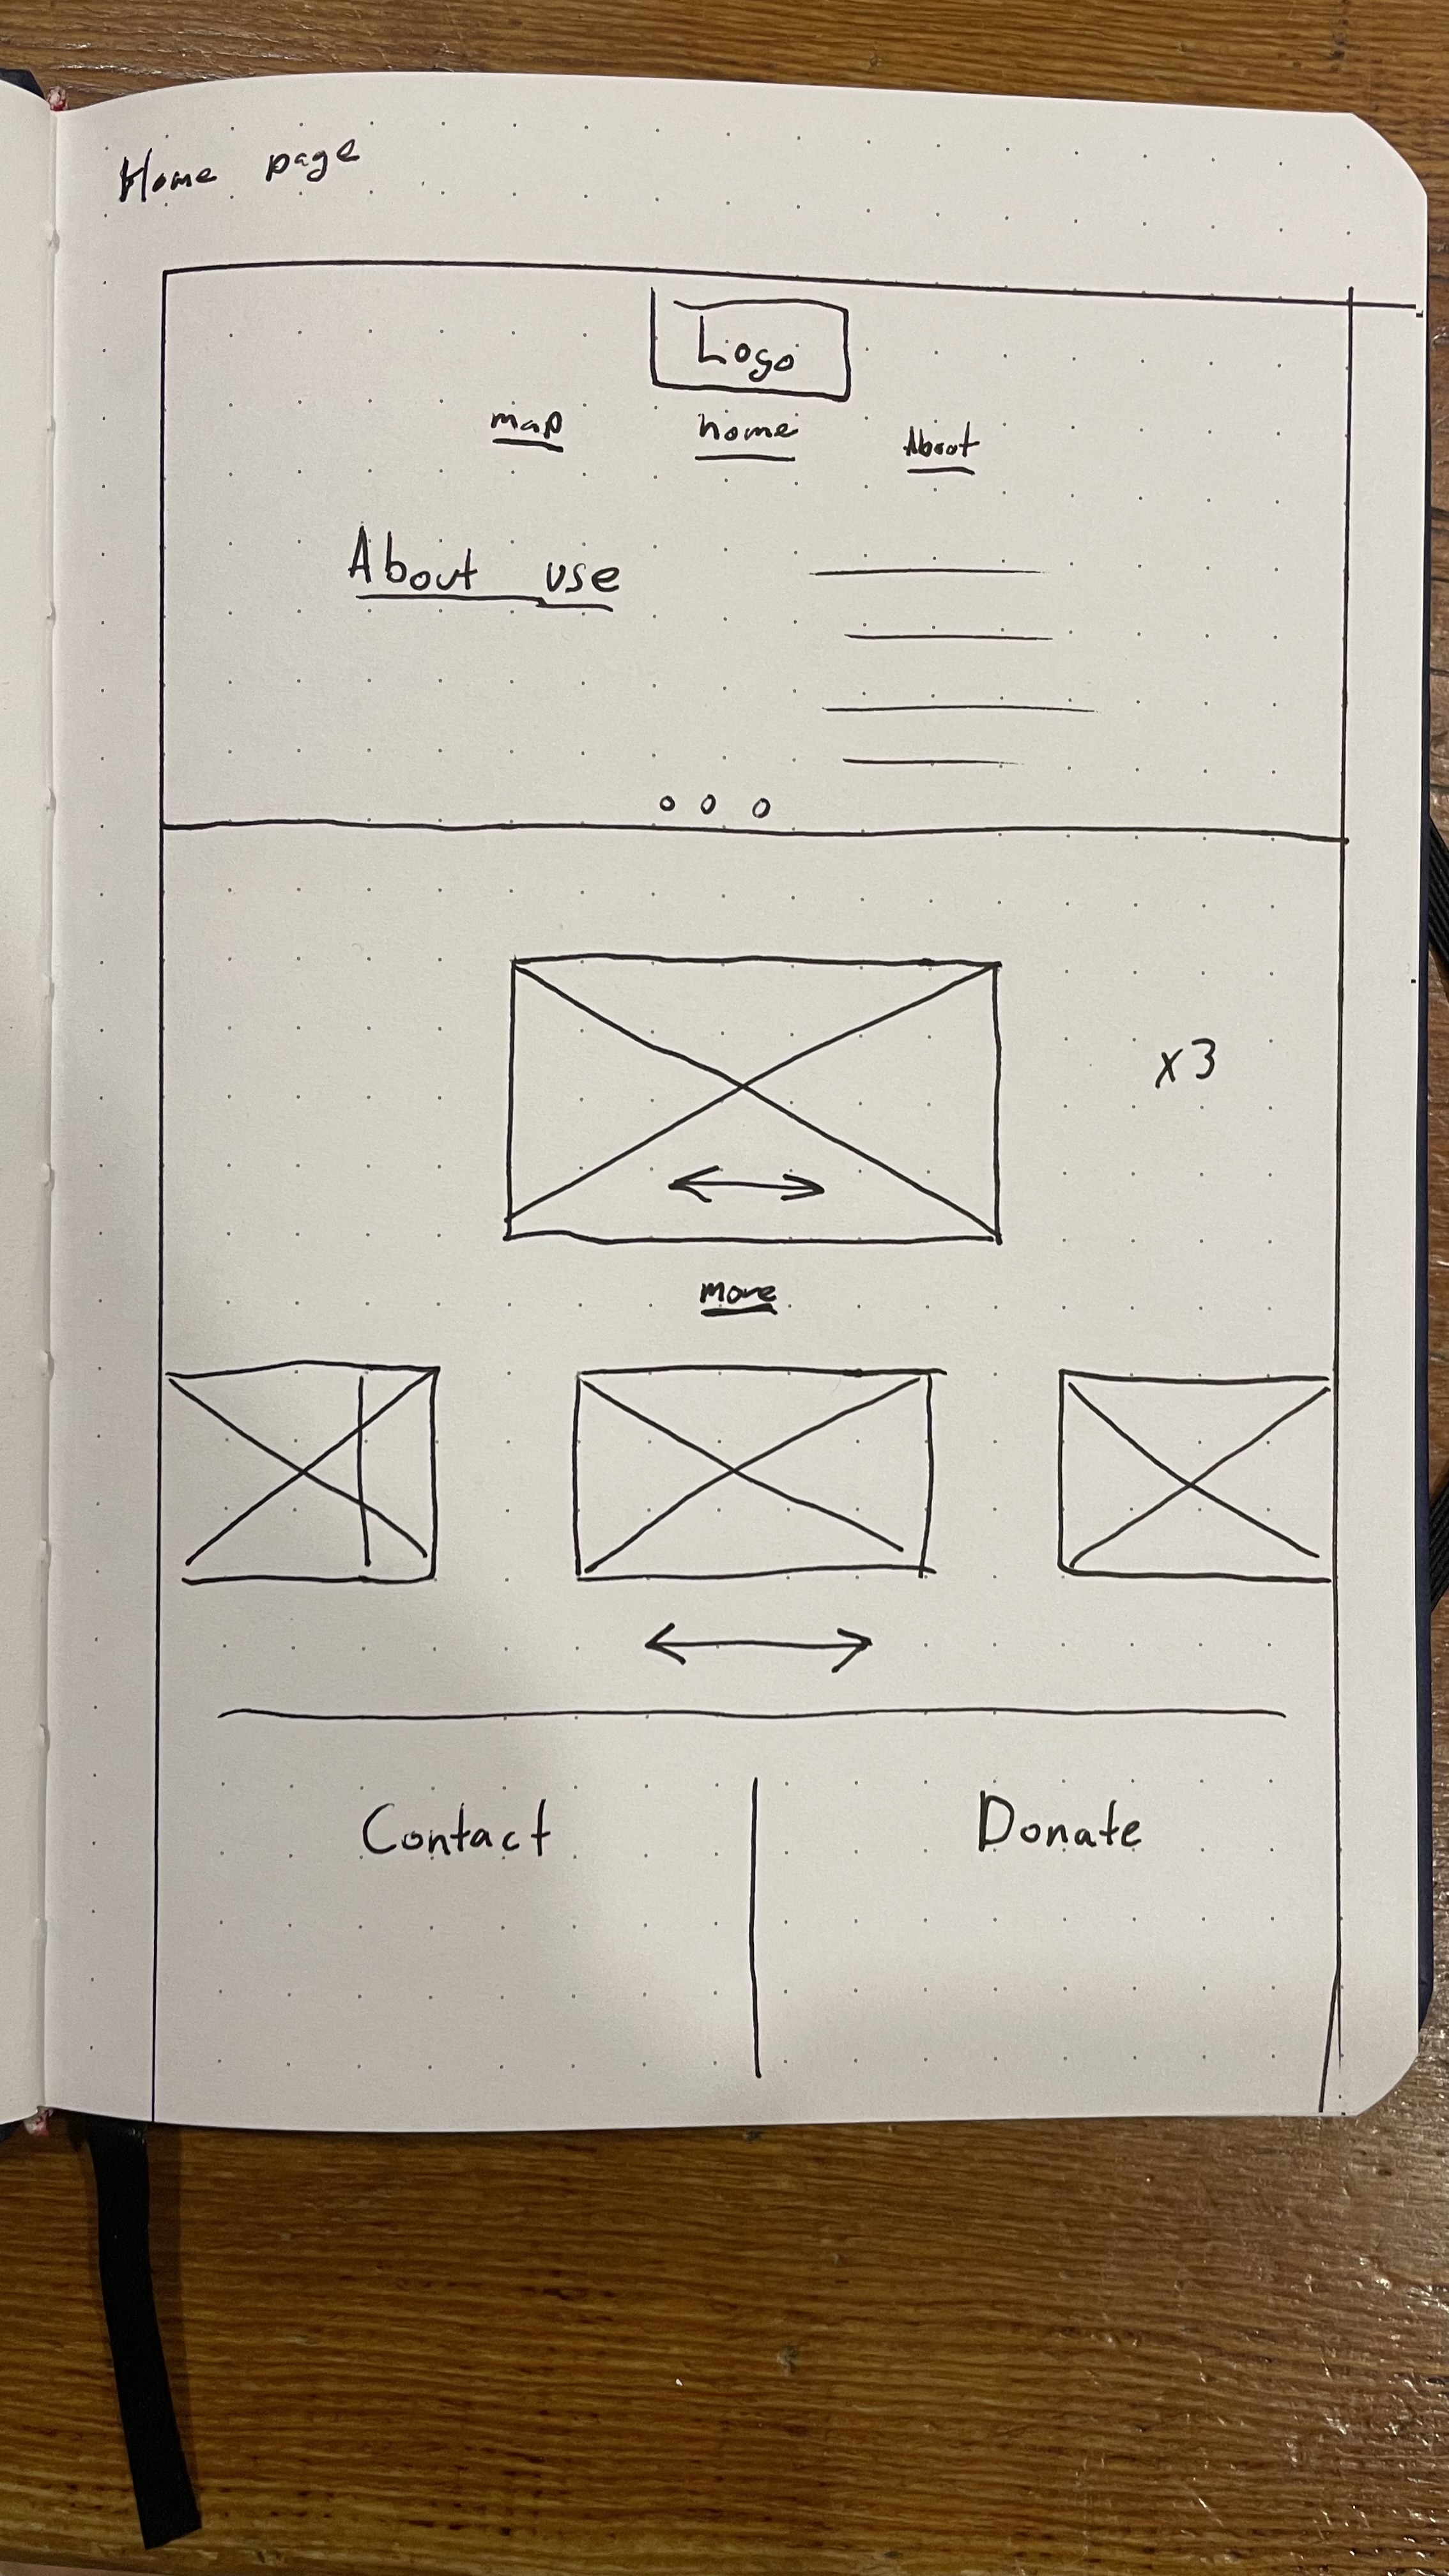 Home page
Logo
map home About
About use
x3
more
Contact Donate